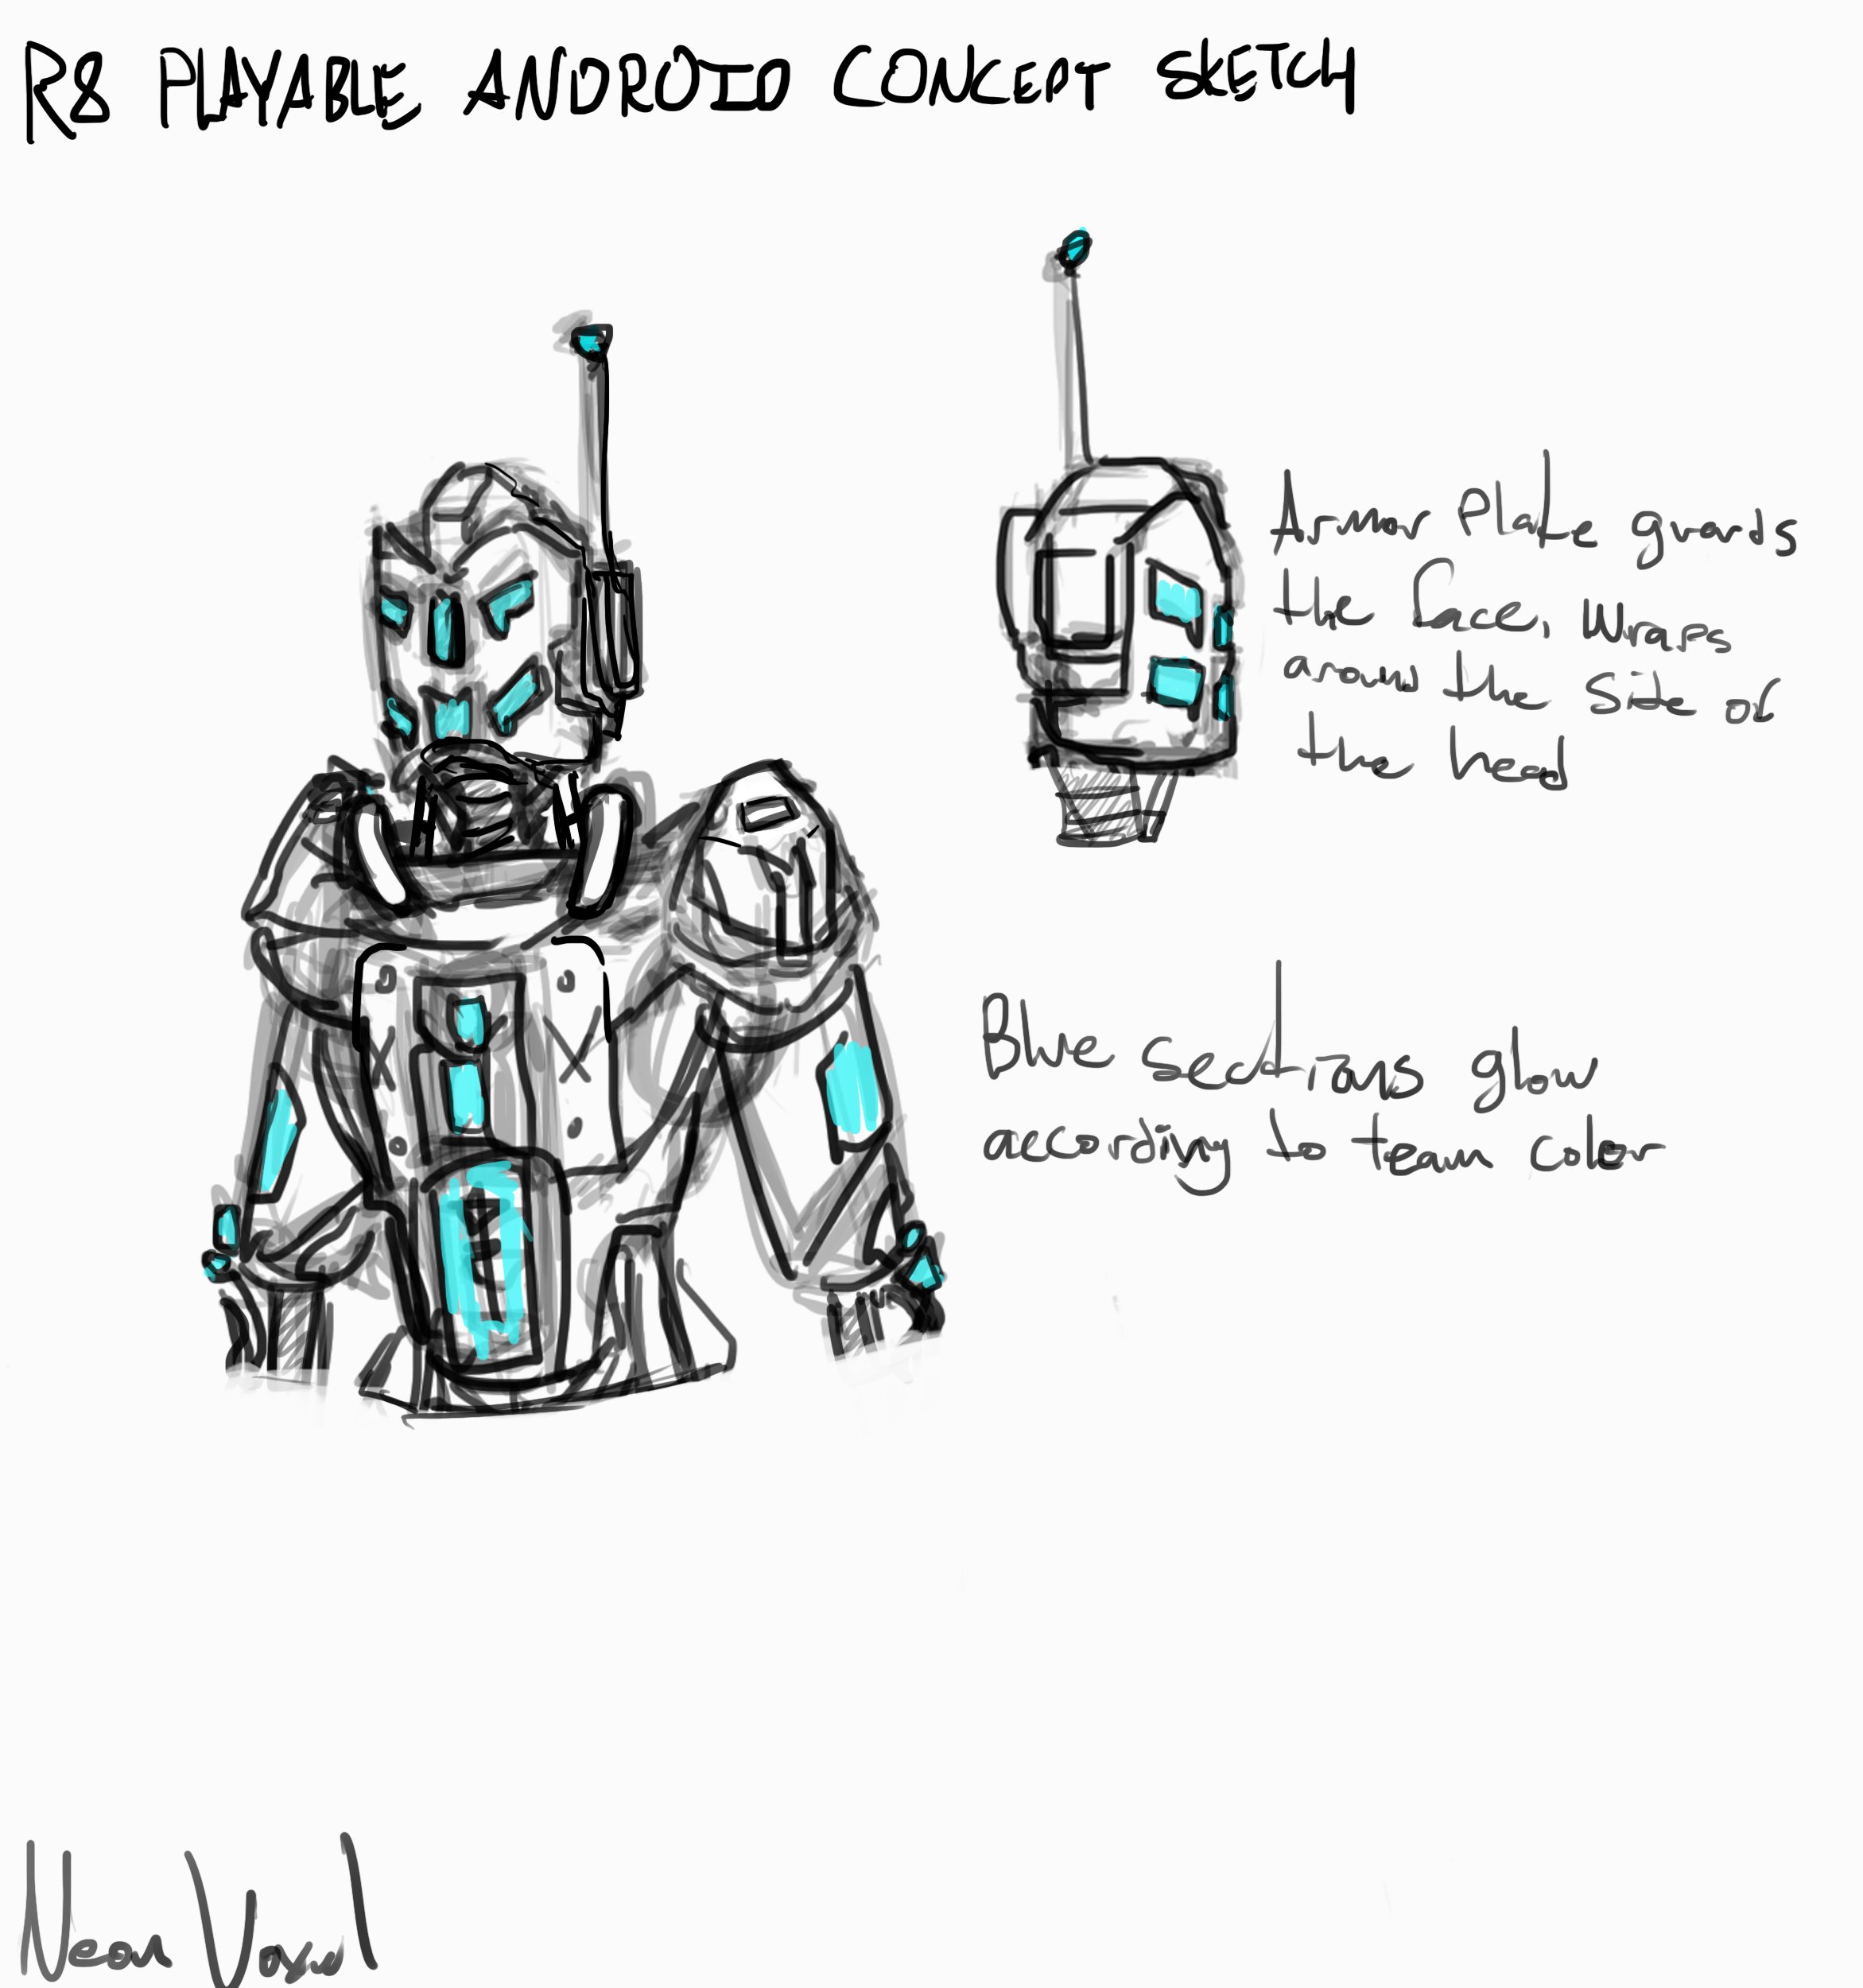 R8 PLAYABLE ANDROID CONCEPT SKETCH
Armor Plate guards
the face, Wraps
around the Side of
the head
Blue sections glow
according to team color
Neon Voxel